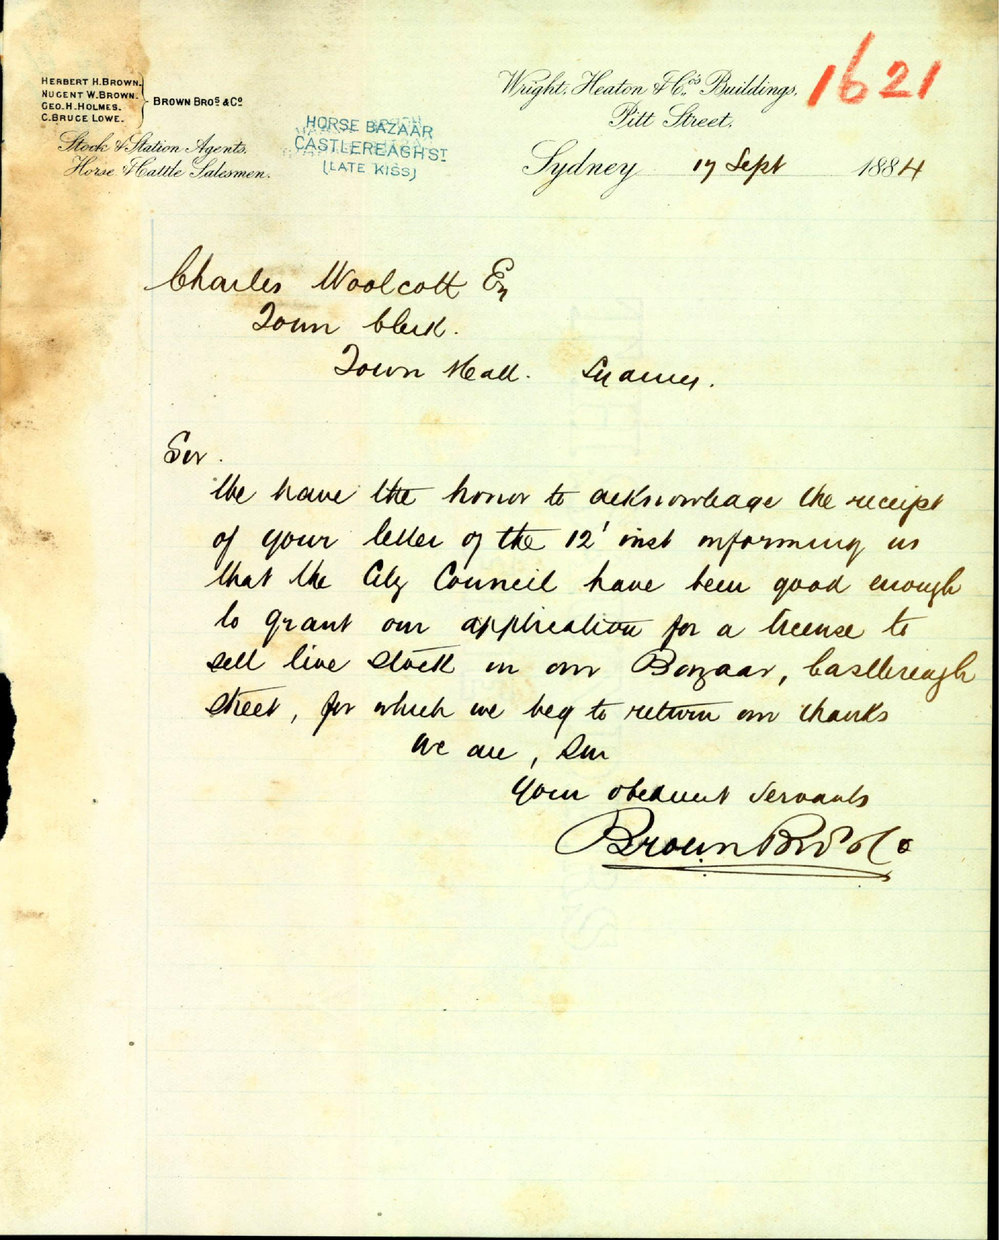 1621
HERBERT H. BROWN.
NUGENT W. BROWN.
GEO. H. HOLMES.
C. BRUCE LOWE.
BROWN BROS & Co
Stock & Station Agents.
Horse & Cattle Salesmen.
HORSE BAZAAR
CASTLEREAGH ST
(LATE KISS)
Wright, Heaton & Co's Buildings,
Pitt Street.
Sydney 17 Sept 1884
Charles Woolcott Esq
Town Clerk.
Town Hall. Sydney.
Sir.
We have the honor to acknowledge the receipt
of your letter of the 12' inst informing us
that the City Council have been good enough
to grant our application for a license to
sell live stock in our Bazaar, Castlereagh
street, for which we beg to return our thanks
We are, Sir
Your obedient servants
Brown Bros & Co